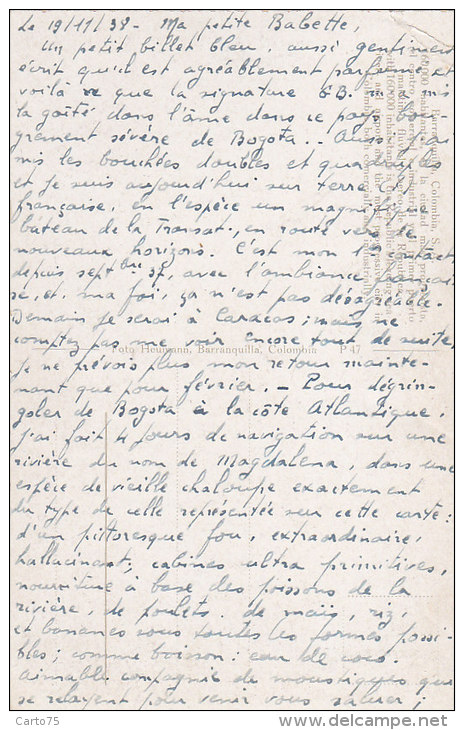 Le 19/11/38 - Ma petite Babette,
Un petit billet bleu, aussi gentiment
écrit qu'il est agréablement parfumé, et
voilà ce que la signature GB. m'a mis
la gaîté, dans l'âme dans ce pays bou-
grement sévère de Bogota.. Aussi j'ai
mis les bouchées doubles et quadruples
et je suis aujourd'hui sur terre
française, en l'espèce un magnifique
bâteau de la Transat., en route vers de
nouveaux horizons. C'est mon 1er contact
depuis septbre 37, avec l'ambiance françai-
se, et, ma foi, ça n'est pas désagréable.
Demain je serai à Caracas ; mais ne
comptez pas me voir encore tout de suite,
je ne prévois plus mon retour mainte-
nant que pour février. - Pour dégrin-
goler de Bogota à la côte Atlantique,
j'ai fait 4 jours de navigation sur une
rivière du nom de Magdalena, dans une
espèce de vieille chaloupe exactement
du type de celle représentée sur cette carte :
d'un pittoresque fou, extraordinaire,
hallucinant ; cabines ultra primitives,
nourriture à base des poissons de la
rivière, de poulets, de maïs, riz,
et bananes sous toutes les formes possi-
bles ; comme boisson : eau de coco.
Aimable compagnie de moustiques qui
se relayent pour venir vous saluer ;
Foto Heumann, Barranquilla, Colombia P 47
Barranquilla, Colombia, S.
Carto75
www.delcampe.net